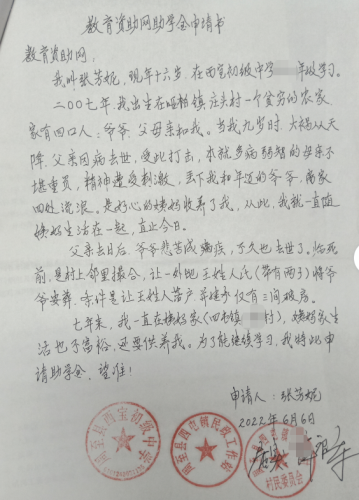 教育资助网助学金申请书
教育资助网：
我叫张芳妮，现年十六岁，在西宝初级中学 年级学习。
二00七年，我出生在哑柏镇庄头村一个贫穷的农家，
家有四口人：爷爷、父母亲和我。当我九岁时，大祸从天
降，父亲因病去世，受此打击，本就多病弱智的母亲不
堪重负，精神遭受刺激，丢下我和年迈的爷爷，离家
四处流浪。是好心的姨妈收养了我，从此，我就一直随
姨妈生活在一起，直止今日。
父亲去日后，爷爷悲苦成痴疾，不久也去世了。临死
前，是村上邻里撮合，让一外地王姓人氏（带有两子）将爷
爷安葬，条件是让王姓人落户并继承仅有三间破房。
七年来，我一直在姨妈家（四 镇 村），姨妈家生
活也不富裕，还要供养我。为了能继续学习，我特此申
请助学金，望准！
申请人：张芳妮
2022年6月6日
周至县西宝初级中学
周至县 镇民政工作站
村民委员会